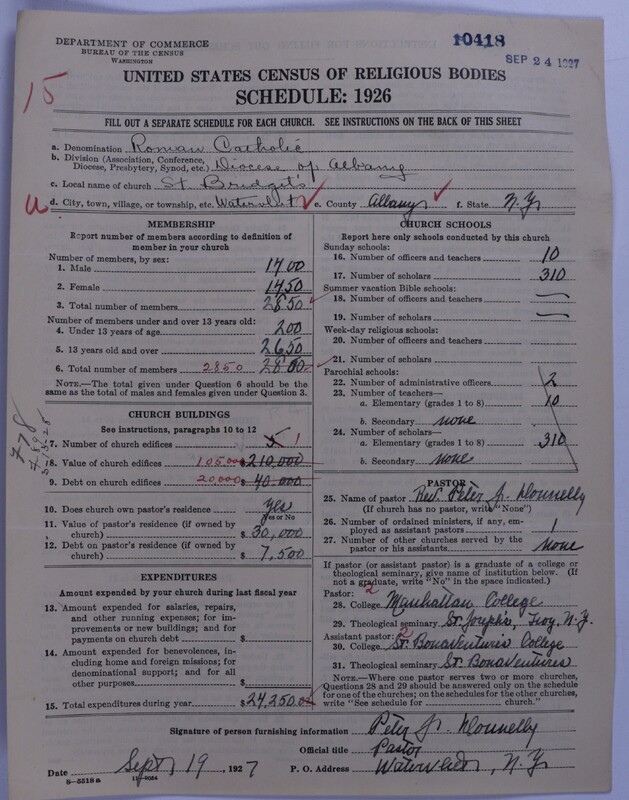 DEPARTMENT OF COMMERCE
BUREAU OF THE CENSUS
WASHINGTON
10418
SEP 24 1927
15
UNITED STATES CENSUS OF RELIGIOUS BODIES
SCHEDULE: 1926
FILL OUT A SEPARATE SCHEDULE FOR EACH CHURCH. SEE INSTRUCTIONS ON THE BACK OF THIS SHEET
a. Denomination Roman Catholic
b. Division (Association, Conference,
Diocese, Presbytery, Synod, etc.) Diocese of Albany
c. Local name of church St. Bridgit's
d. City, town, village, or township, etc. Watervliet e. County Albany f. State N.Y.
MEMBERSHIP
Report number of members according to definition of
member in your church
Number of members, by sex:
1. Male 1400
2. Female 1450
3. Total number of members 2850
Number of members under and over 13 years old:
4. Under 13 years of age 200
5. 13 years old and over 2650
6. Total number of members 2850
NOTE.—The total given under Question 6 should be the
same as the total of males and females given under Question 3.
CHURCH BUILDINGS
See instructions, paragraphs 10 to 12
7. Number of church edifices 1
8. Value of church edifices 105000 $210,000
9. Debt on church edifices 20000 $40,000
10. Does church own pastor's residence? yes
Yes or No
11. Value of pastor's residence (if owned by
church) $30,000
12. Debt on pastor's residence (if owned by
church) $7,500
EXPENDITURES
Amount expended by your church during last fiscal year
13. Amount expended for salaries, repairs,
and other running expenses; for im-
provements or new buildings; and for
payments on church debt $
14. Amount expended for benevolences,
including home and foreign missions; for
denominational support; and for all
other purposes $
15. Total expenditures during year $24,250.00
CHURCH SCHOOLS
Report here only schools conducted by this church
Sunday schools:
16. Number of officers and teachers 10
17. Number of scholars 310
Summer vacation Bible schools:
18. Number of officers and teachers —
19. Number of scholars —
Week-day religious schools:
20. Number of officers and teachers
21. Number of scholars
Parochial schools:
22. Number of administrative officers 2
23. Number of teachers—
a. Elementary (grades 1 to 8) 10
b. Secondary none
24. Number of scholars—
a. Elementary (grades 1 to 8) 310
b. Secondary none
PASTOR
25. Name of pastor Rev. Peter J. Donnelly
(If church has no pastor, write "None")
26. Number of ordained ministers, if any, em-
ployed as assistant pastors 1
27. Number of other churches served by the
pastor or his assistants none
If pastor (or assistant pastor) is a graduate of a college or
theological seminary, give name of institution below. (If
not a graduate, write "No" in the space indicated.)
Pastor: 2
28. College Manhattan College
29. Theological seminary St. Joseph's, Troy, N.Y.
Assistant pastor: 2
30. College St. Bonaventures College
31. Theological seminary St. Bonaventures
NOTE.—Where one pastor serves two or more churches,
Questions 28 and 29 should be answered only on the schedule
for one of the churches; on the schedules for the other churches,
write "See schedule for church."
Signature of person furnishing information Peter J. Donnelly
Official title Pastor
Date Sept 19, 1927 P. O. Address Watervliet, N.Y.
8—5518a 11—9054